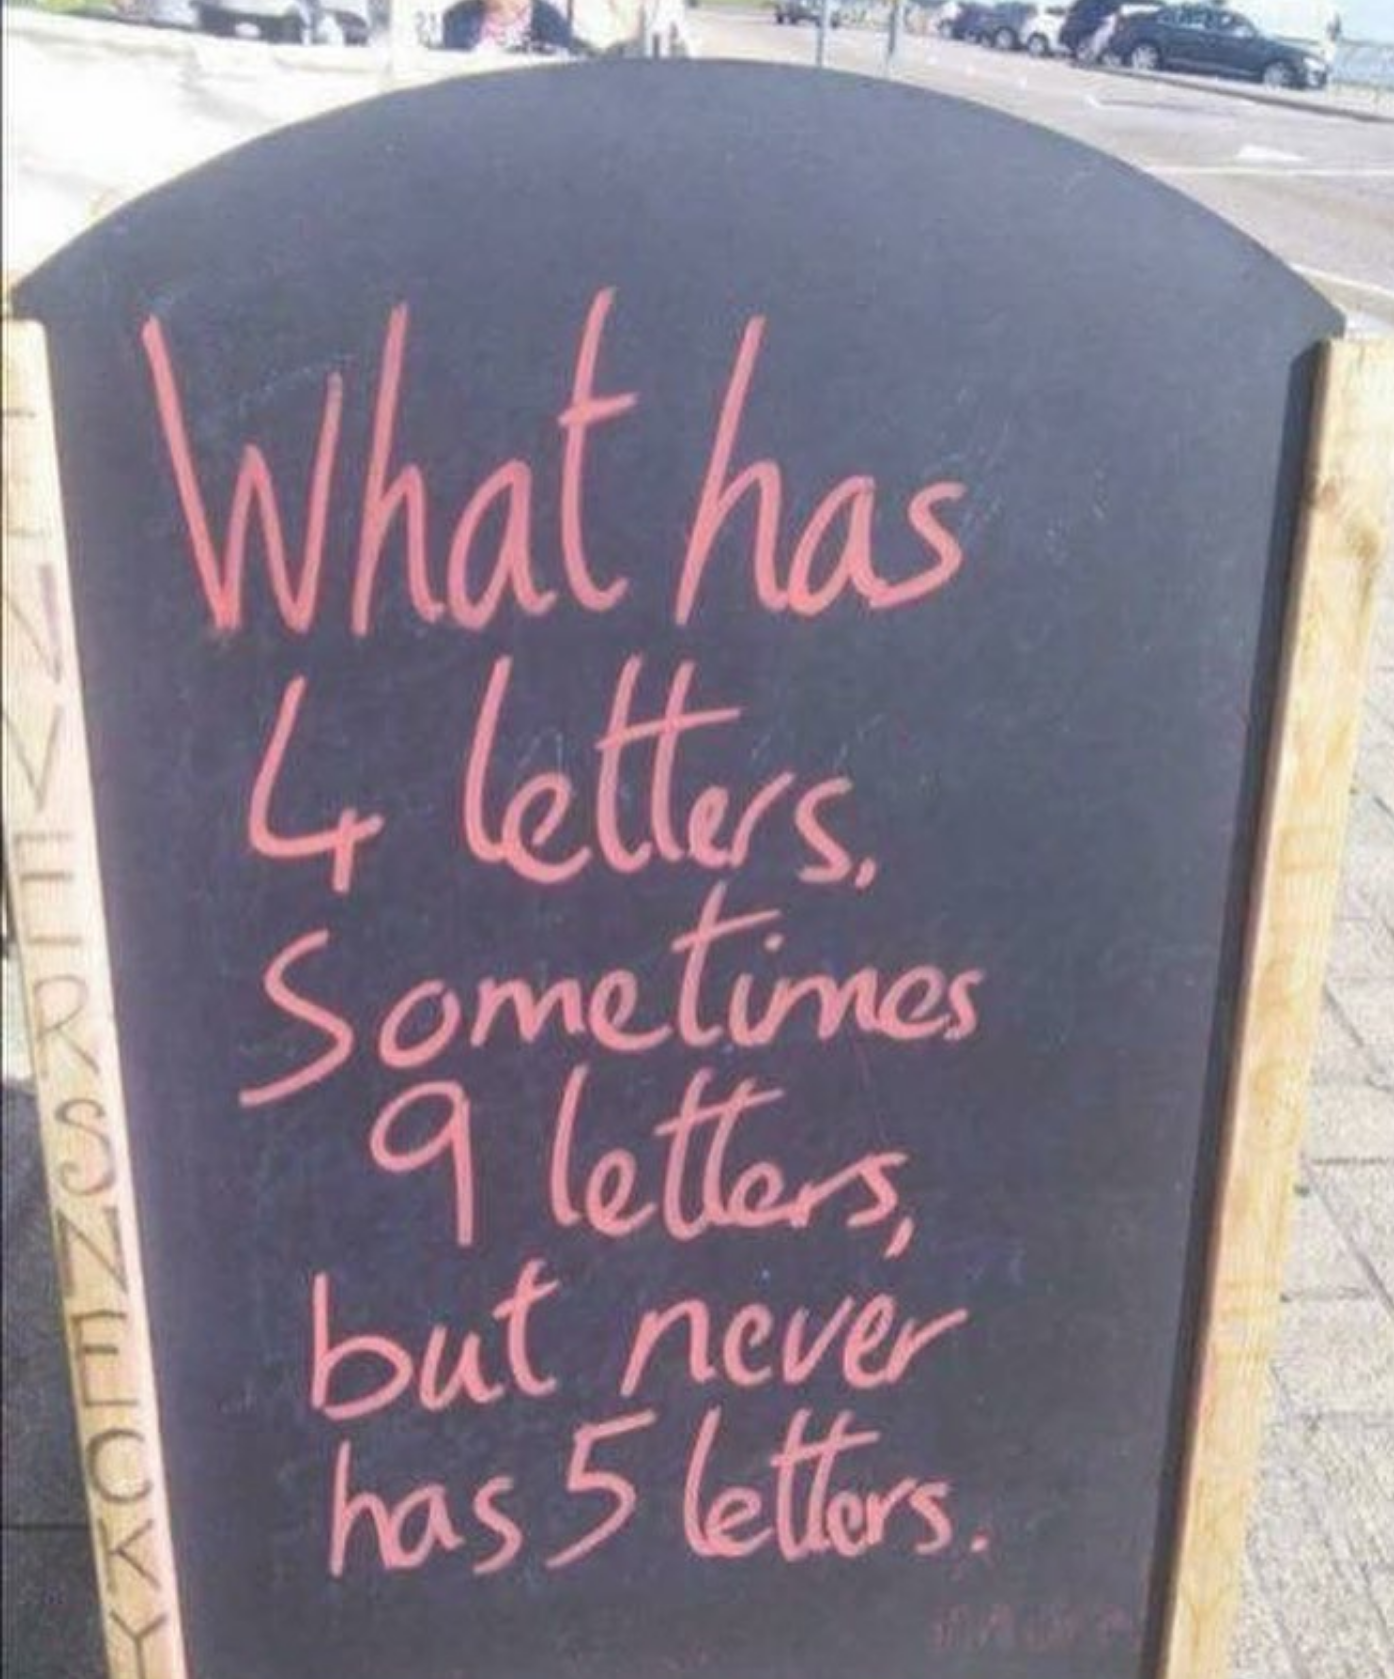 INVERSNECKY
What has
4 letters,
Sometimes
9 letters,
but never
has 5 letters.